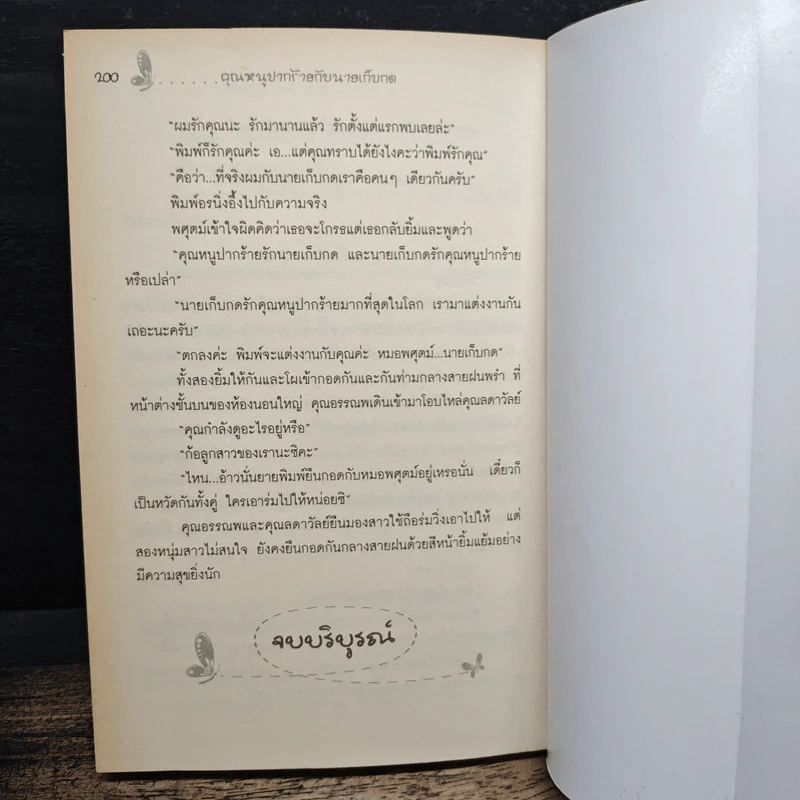 200 ......คุณหนูปากร้ายกับนายเก็บกด
"ผมรักคุณนะ รักมานานแล้ว รักตั้งแต่แรกพบเลยล่ะ"
"พิมพ์ก็รักคุณค่ะ เอ...แต่คุณทราบได้ยังไงคะว่าพิมพ์รักคุณ"
"คือว่า...ที่จริงผมกับนายเก็บกดเราคือคนๆ เดียวกันครับ"
พิมพ์อรนิ่งอึ้งไปกับความจริง
พศุตม์เข้าใจผิดคิดว่าเธอจะโกรธแต่เธอกลับยิ้มและพูดว่า
"คุณหนูปากร้ายรักนายเก็บกด และนายเก็บกดรักคุณหนูปากร้าย
หรือเปล่า"
"นายเก็บกดรักคุณหนูปากร้ายมากที่สุดในโลก เรามาแต่งงานกัน
เถอะนะครับ"
"ตกลงค่ะ พิมพ์จะแต่งงานกับคุณค่ะ หมอพศุตม์...นายเก็บกด"
ทั้งสองยิ้มให้กันและโผเข้ากอดกันและกันท่ามกลางสายฝนพรำ ที่
หน้าต่างชั้นบนของห้องนอนใหญ่ คุณอรรณพเดินเข้ามาโอบไหล่คุณลดาวัลย์
"คุณกำลังดูอะไรอยู่หรือ"
"ก้อลูกสาวของเรานะซิคะ"
"ไหน...อ้าวนั่นยายพิมพ์ยืนกอดกับหมอพศุตม์อยู่เหรอนั่น เดี๋ยวก็
เป็นหวัดกันทั้งคู่ ใครเอาร่มไปให้หน่อยซิ"
คุณอรรณพและคุณลดาวัลย์ยืนมองสาวใช้ถือร่มวิ่งเอาไปให้ แต่
สองหนุ่มสาวไม่สนใจ ยังคงยืนกอดกันกลางสายฝนด้วยสีหน้ายิ้มแย้มอย่าง
มีความสุขยิ่งนัก
จบบริบูรณ์